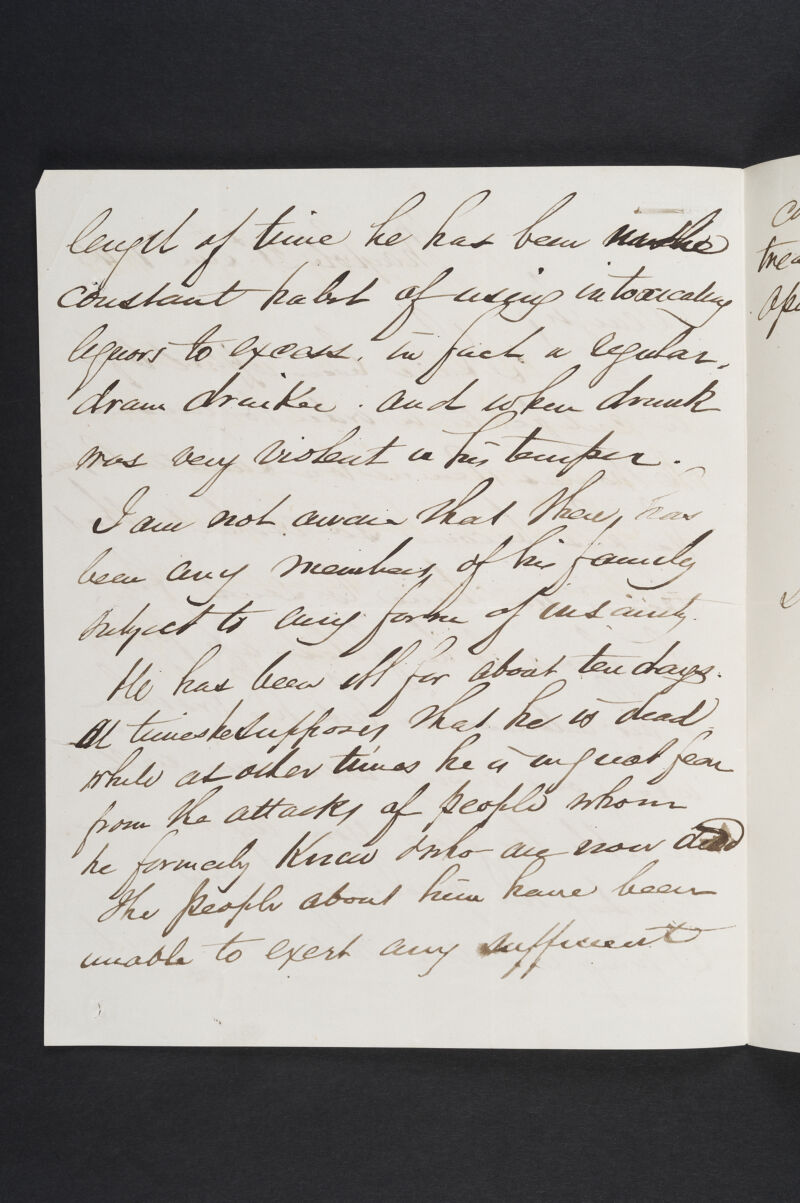 length of time he has been in the
constant habit of using intoxicating
liquors to excess. in fact a regular.
dram drinker. and when drunk
was very violent in his temper.
I am not aware that there has
been any members of his family
subject to any form of insanity.
He has been ill for about ten days.
At times he supposes that he is dead
while at other times he is in great fear
from the attacks of people whom
he formerly knew & who are now dead
The people about him have been
unable to exert any sufficient